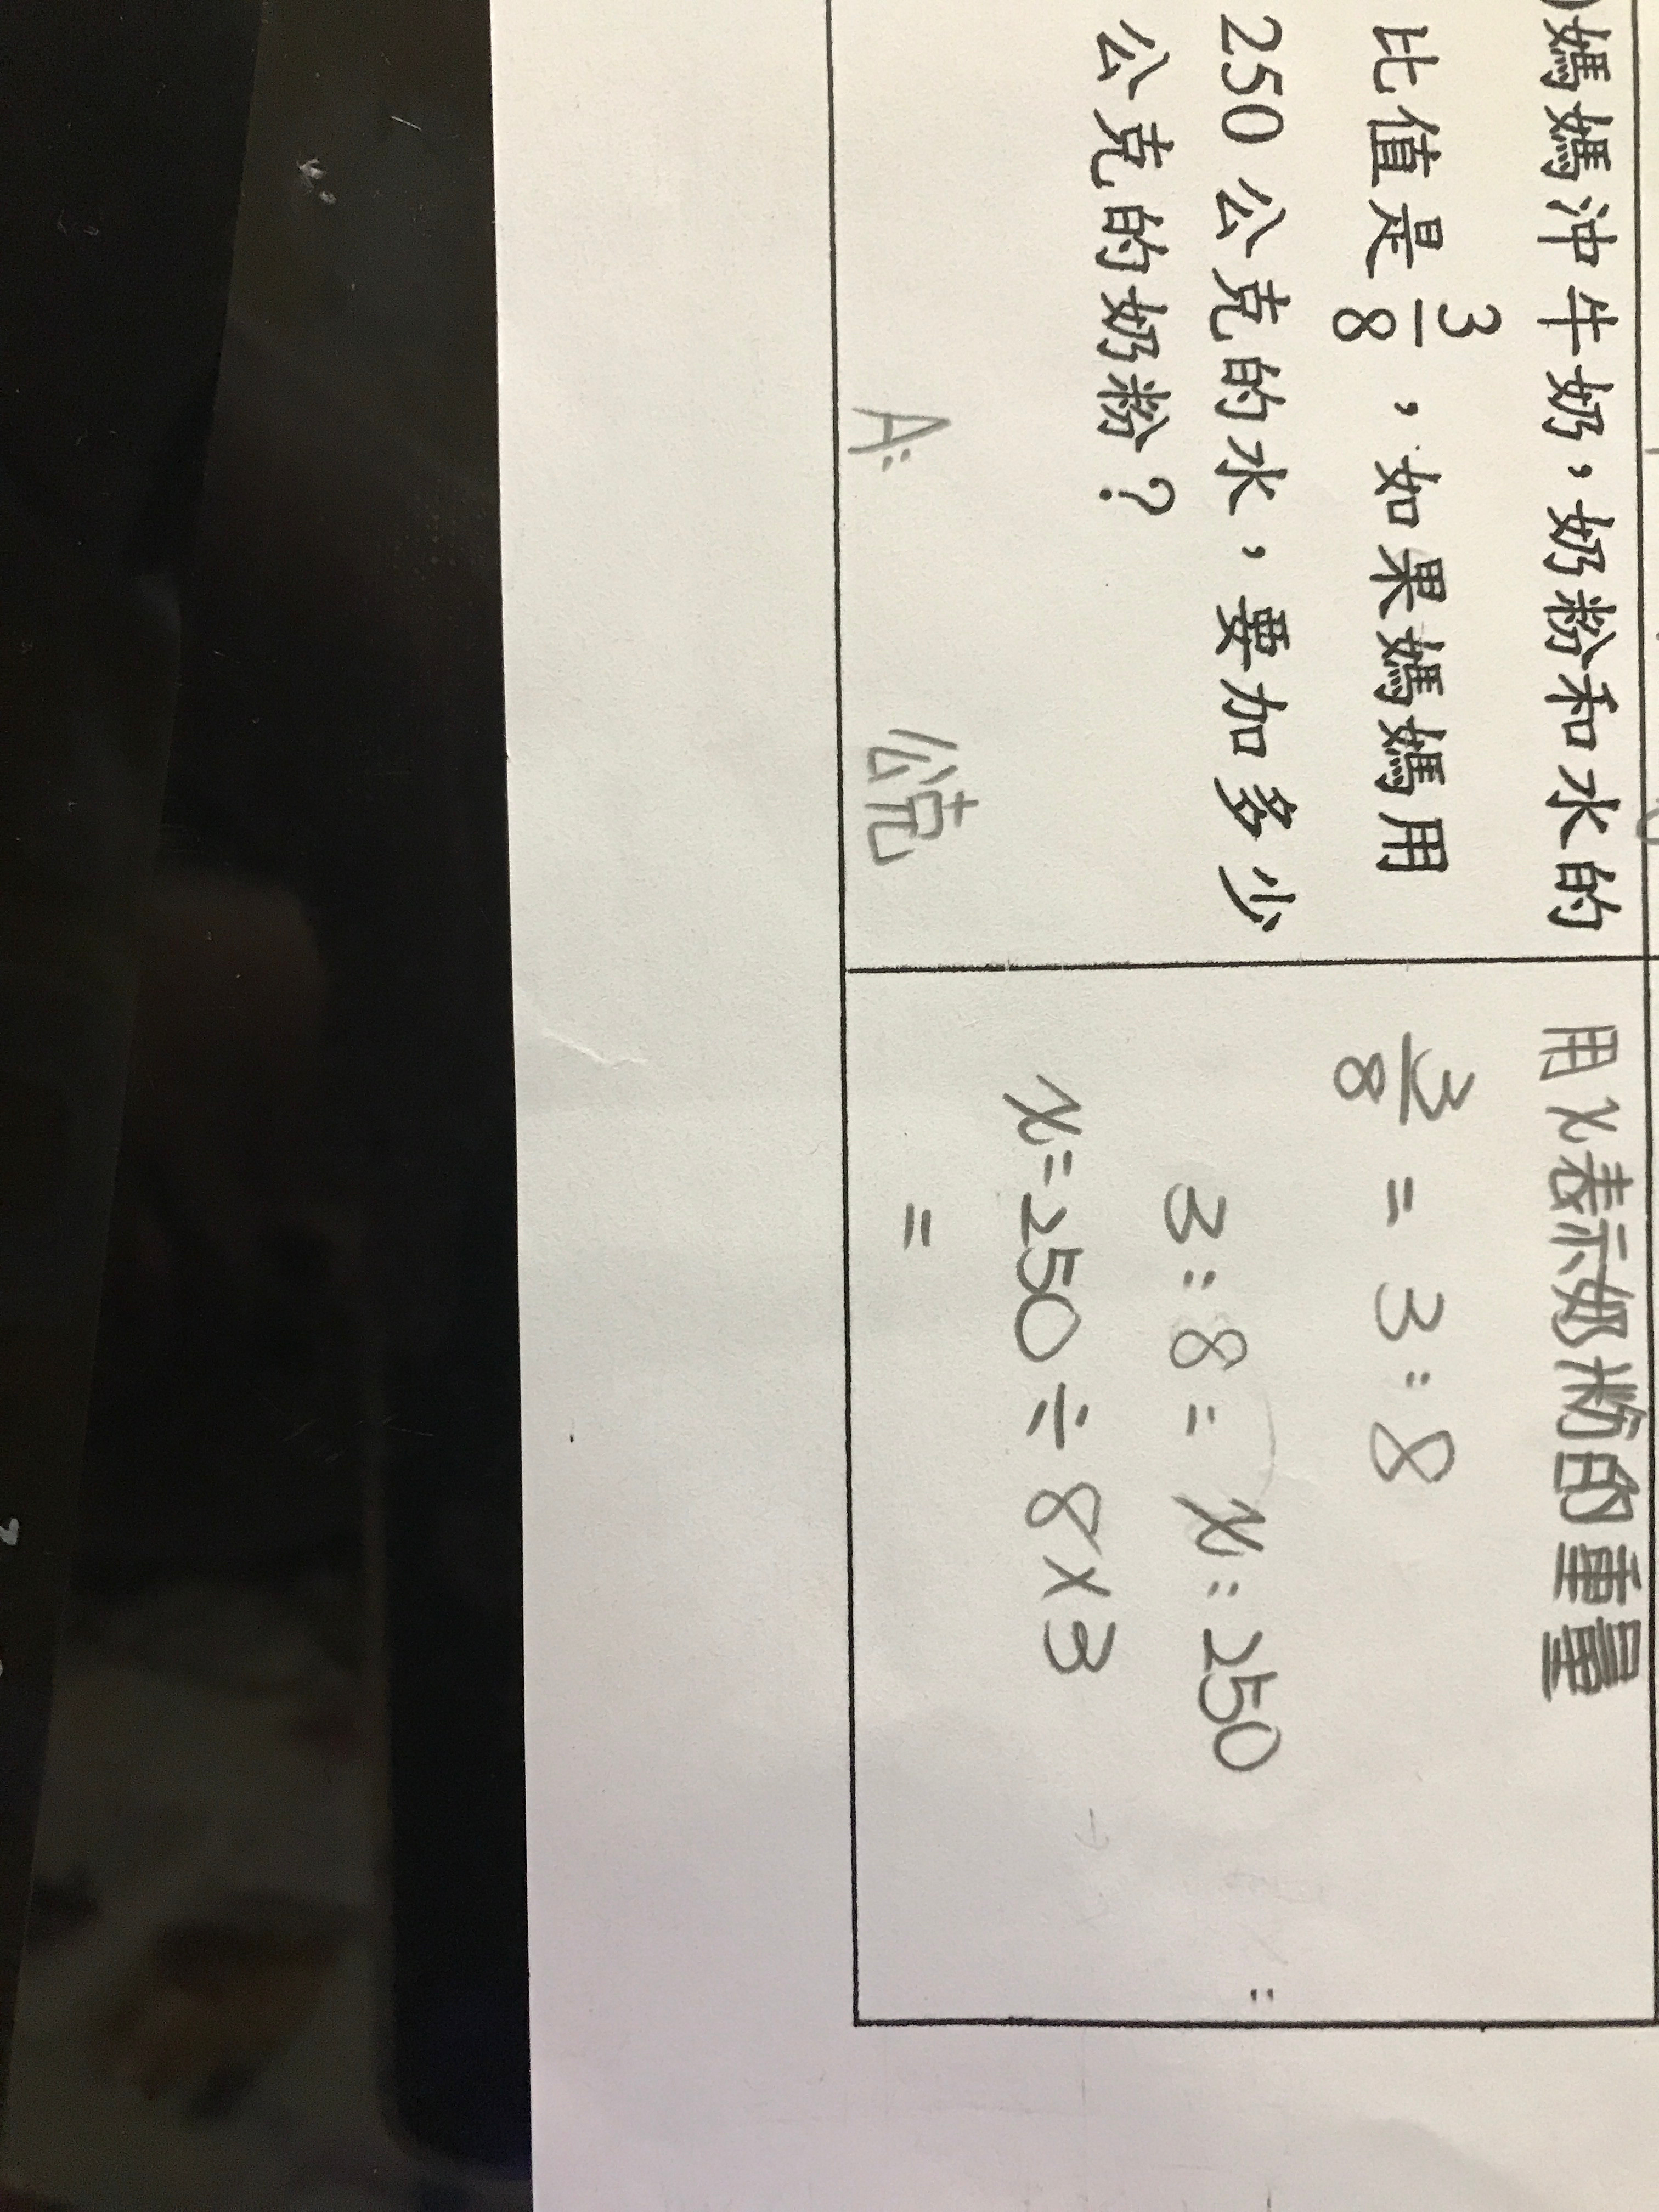 )媽媽沖牛奶,奶粉和水的
比值是 3/8,如果媽媽用
250公克的水,要加多少
公克的奶粉?
A: 公克
用x表示奶粉的重量
3/8 = 3:8
3:8=x:250
x=250÷8×3
=